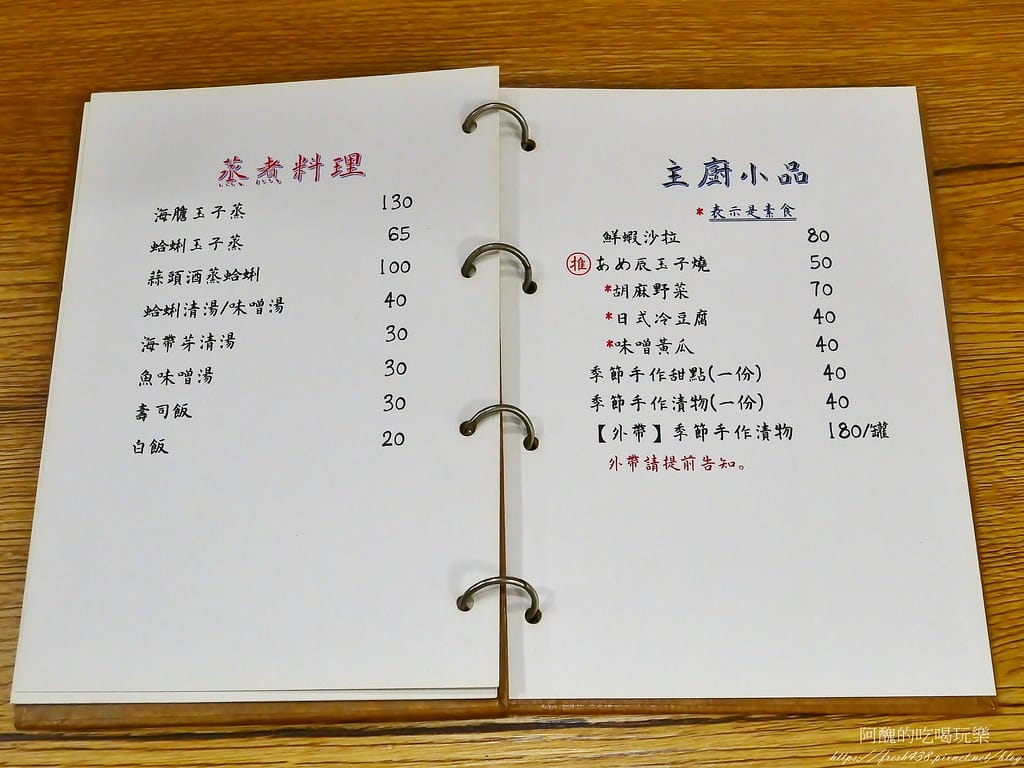 蒸煮料理
海膽玉子蒸 130
蛤蜊玉子蒸 65
蒜頭酒蒸蛤蜊 100
蛤蜊清湯/味噌湯 40
海帶芽清湯 30
魚味噌湯 30
壽司飯 30
白飯 20
主廚小品
*表示是素食
鮮蝦沙拉 80
推 あめ辰玉子燒 50
*胡麻野菜 70
*日式冷豆腐 40
*味噌黃瓜 40
季節手作甜點(一份) 40
季節手作漬物(一份) 40
【外帶】季節手作漬物 180/罐
外帶請提前告知。
阿醜的吃喝玩樂
https://fresh438.pixnet.net/blog